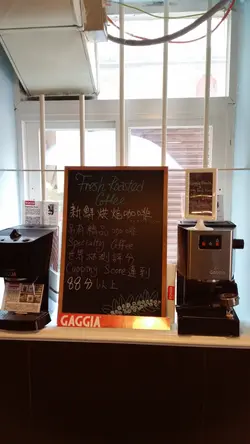 Fresh Roasted
Coffee
新鮮烘焙咖啡
所有精品咖啡
Specialty Coffee
世界杯測評分
Cupping Score達到
88分以上
GAGGIA